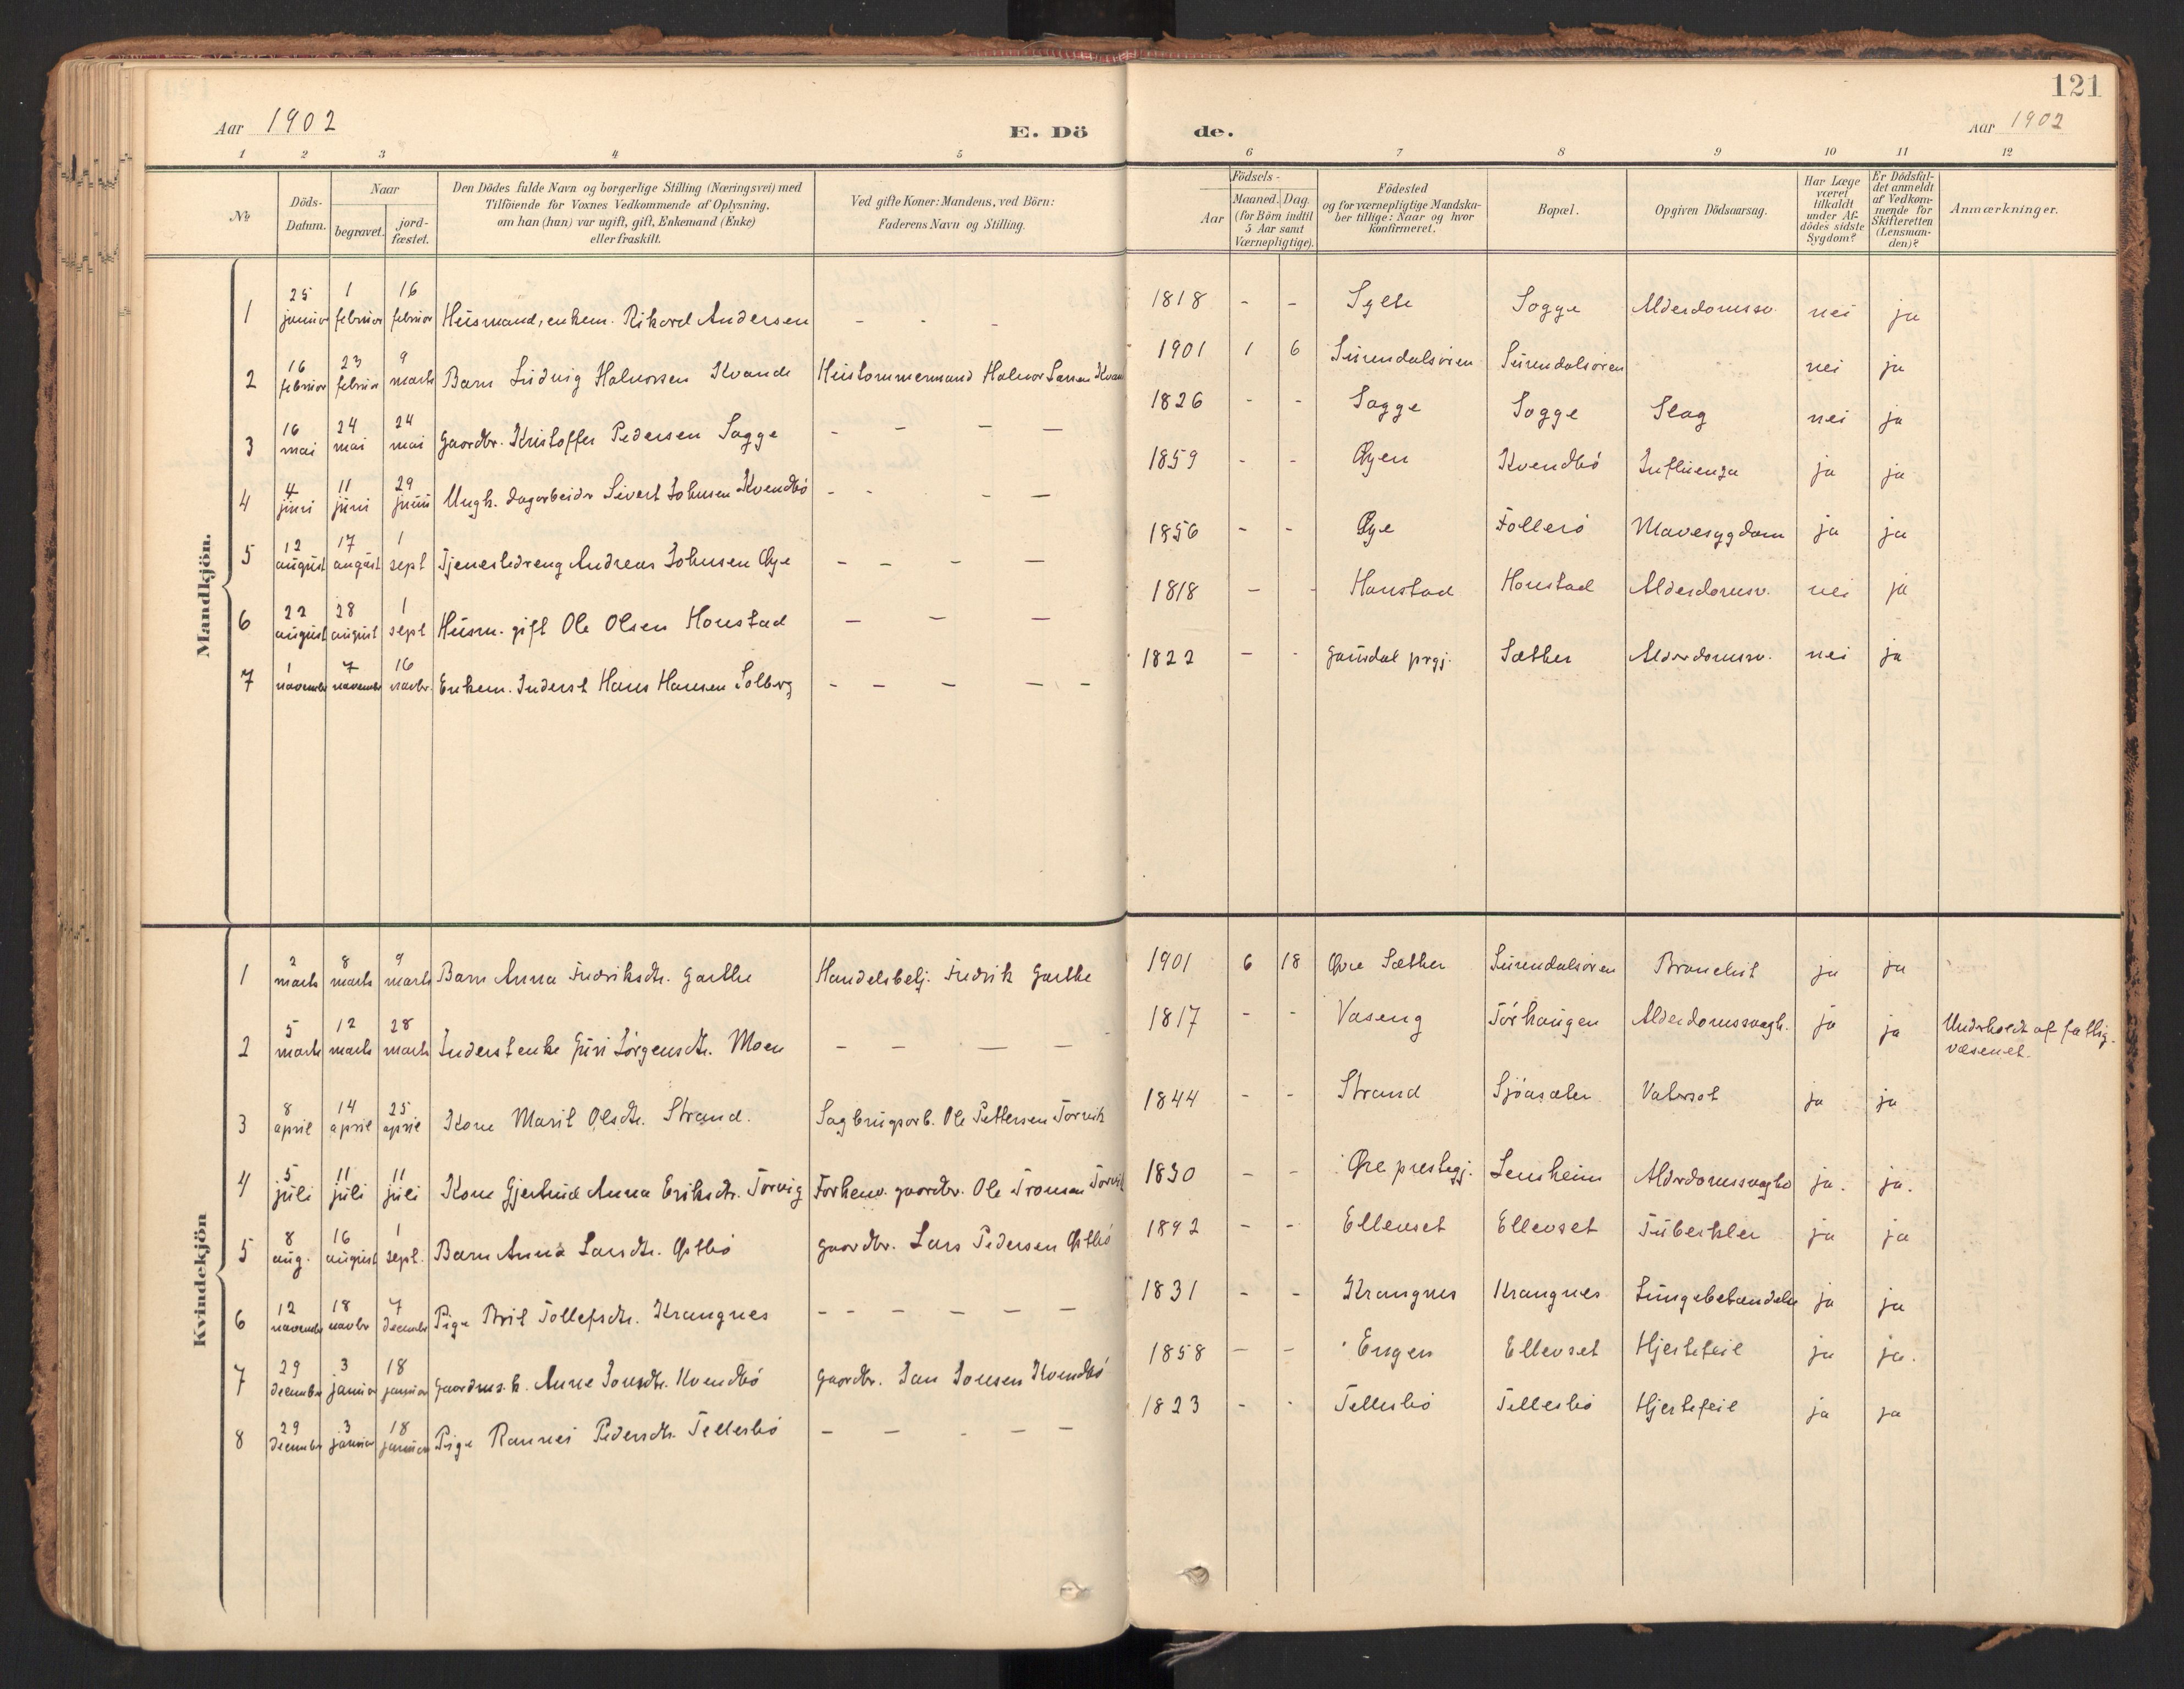 121
Aar 1902 E. Dö de. Aar 1902
1 2 3 4 5 6 7 8 9 10 11 12
No
Döds-Datum.
Naar
begravet.
jord-fæstet.
Den Dödes fulde Navn og borgerlige Stilling (Næringsvei) med
Tilföiende for Voxnes Vedkommende af Oplysning,
om han (hun) var ugift, gift, Enkemand (Enke)
eller fraskilt.
Ved gifte Koner: Mandens, ved Börn:
Faderens Navn og Stilling.
Födsels-
Aar
Maaned. Dag
(for Börn indtil
5 Aar samt
Værnepligtige).
Födested
og for værnepligtige Mandska-
ber tillige: Naar og hvor
Konfirmeret.
Bopæl.
Opgiven Dödsaarsag.
Har Læge
været
tilkaldt
under Af-
dödes sidste
Sygdom?
Er Dödsfal-
det anmeldt
af Vedkom-
mende for
Skifteretten
(Lensman-
den)?
Anmærkninger.
Mandkjön.
1 25 januar 1 februar 16 februar Husmand, enkem. Rikard Andersen - - - 1818 - - Sylte Sogge Alderdomssv. nei ja
2 16 februar 23 februar 9 marts Barn Ludvig Halvorsen Kvande Hustømmermand Halvor Larsen 1901 1 6 Surendalsøren Surendalsøren nei ja
3 16 mai 24 mai 24 mai Gaardbr. Kristoffer Pedersen Sogge - - - - 1826 - - Sogge Sogge Slag nei ja
4 4 juni 11 juni 29 juni Ungk. dagarbeider Sivert Johnsen Kvendbö - - - - 1859 - - Øyen Kvendbö Influenza ja ja
5 12 august 17 august 1 sept Tjenestedreng Andreas Johnsen Øye - - - - 1856 - - Øye Tollerö Mavesygdom ja ja
6 22 august 28 august 1 sept Husm. gift Ole Olsen Honstad - - - 1818 - - Honstad Honstad Alderdomsv. nei ja
7 1 november 7 november 16 novbr. Enkem. Inderst Hans Hansen Solberg - - - - - 1822 - - Gausdal prgj. Sæther Alderdomssv. nei ja
Kvindekjön
1 2 marts 8 marts 9 marts Barn Anna Fredriksdtr. Garthe Handelsbetj. Fredrik Garthe 1901 6 18 Øvre Sæther Surendalsøren Bronchit ja ja
2 5 marts 12 marts 28 marts Inderstenke Guri Jörgensdtr. Moen - - - - 1817 - - Vaseng Törhaugen Alderdomssvagh. ja ja Underholdt af fattig-
væsenet.
3 8 april 14 april 25 april Kone Marit Olsdtr. Strand. Sagbrugsarb. Ole Pettersen Torvik 1844 - - Strand Sjöasæter Vatersot ja ja
4 5 juli 11 juli 11 juli Kone Gjertrud Anna Eriksdtr. Torvig Forhenv. gaardbr. Ole Tronsen Torvik 1830 - - Øre prestegj. Lensheim Alderdomssvaghed ja. ja.
5 8 aug. 16 august 1 sept. Barn Anna Larsdtr. Østbö Gaardbr. Lars Pedersen Østbö 1892 - - Ellevset Ellevset Tuberkler ja ja
6 12 november 18 novbr 7 december Pige Brit Tollefsdtr. Krangnes - - - - - - 1831 - - Krangnes Krangnes Lungebetændelse ja ja
7 29 december 3 januar 18 januar Gaardms.k. Anne Jonsdtr. Kvendbö Gaardbr. Jon Jonsen Kvendbö 1858 - - Engen Ellevset Hjertefeil ja ja.
8 29 december 3 januar 18 januar Pige Rannei Pedersdtr. Tellesbö - - - - - 1823 - - Tellesbö Tellesbö Hjertefeil ja ja